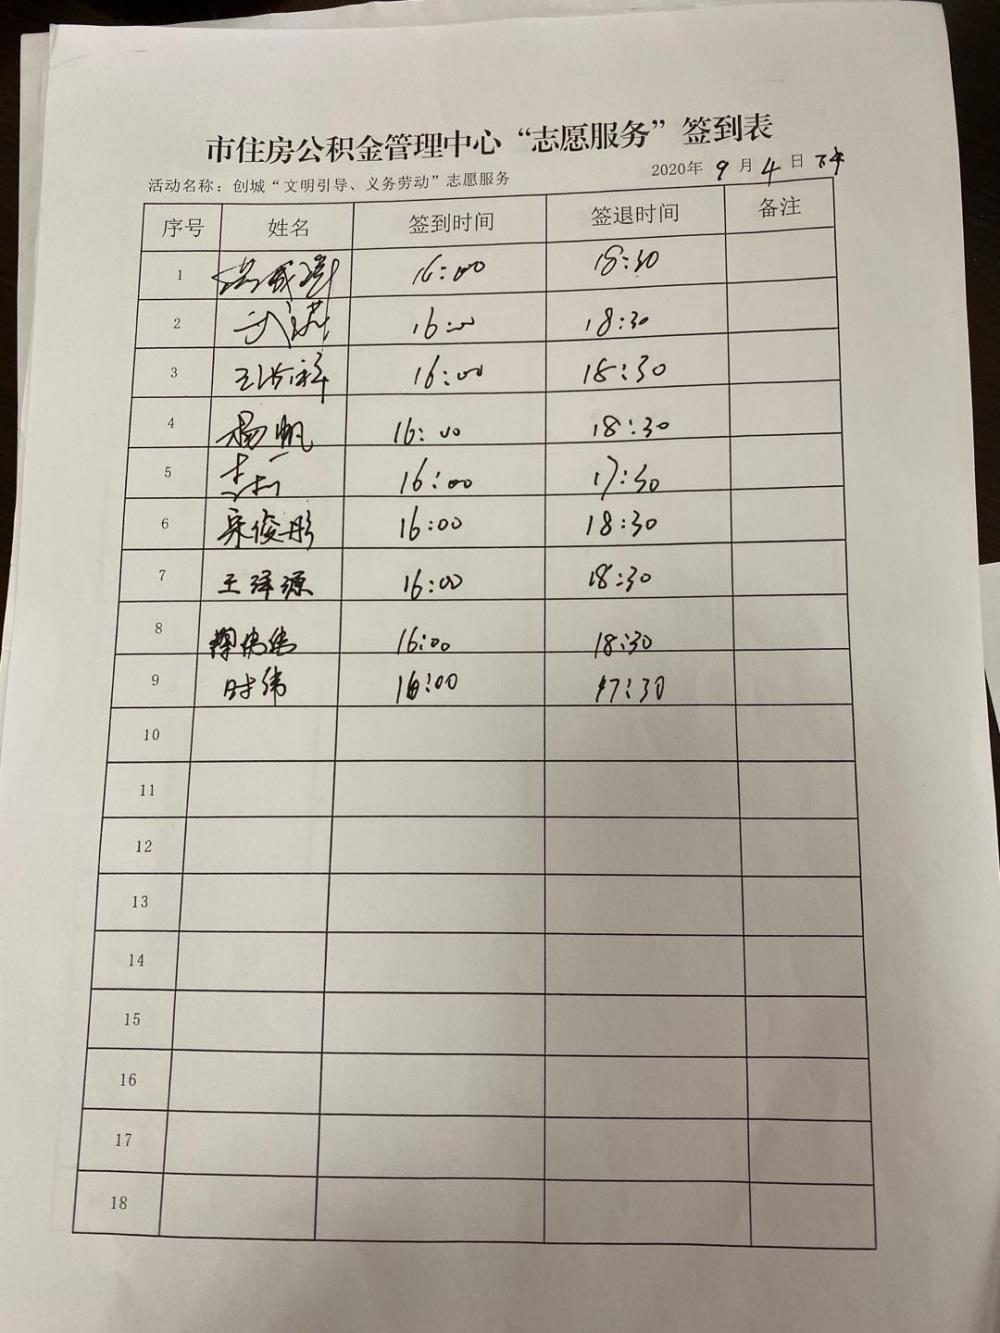 市住房公积金管理中心“志愿服务”签到表
活动名称：创城“文明引导、义务劳动”志愿服务 2020年 9 月 4 日 下午
序号 姓名 签到时间 签退时间 备注
1 16:00 18:30
2 16:00 18:30
3 16:00 18:30
4 杨帆 16:00 18:30
5 16:00 17:30
6 宋俊彤 16:00 18:30
7 王泽源 16:00 18:30
8 16:00 18:30
9 时纬 16:00 17:30
10
11
12
13
14
15
16
17
18